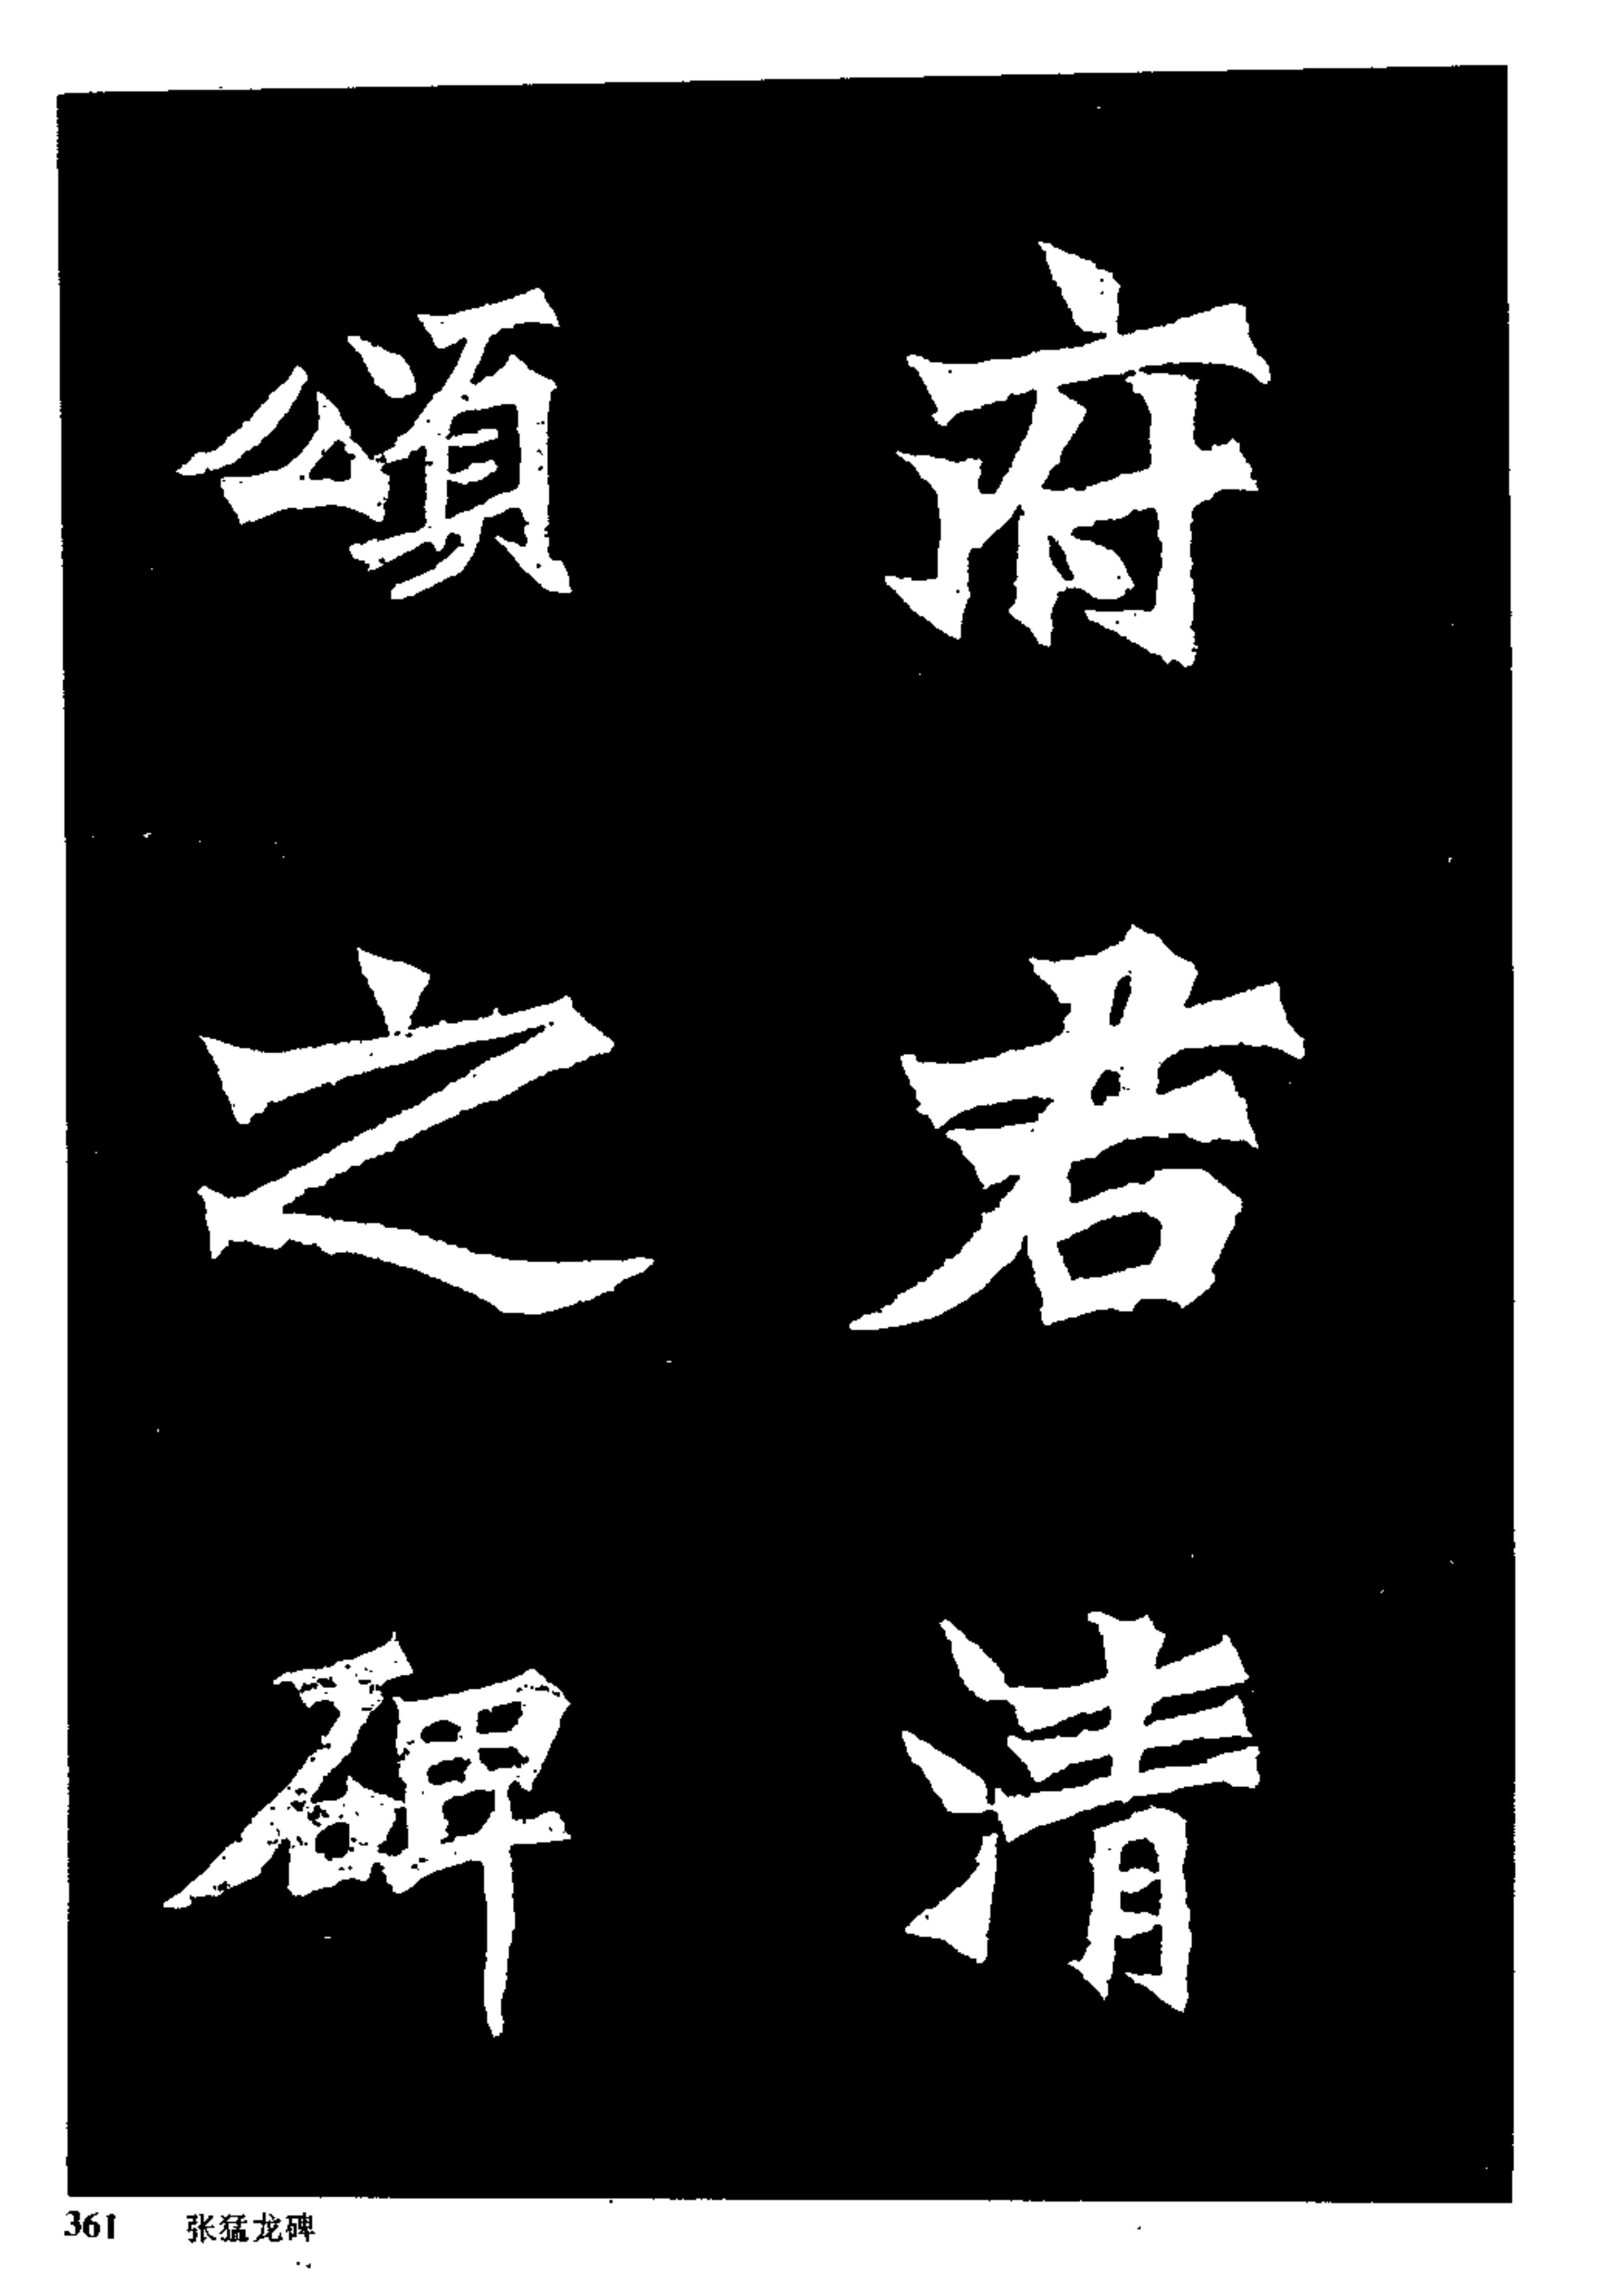 府君清
頌之碑
361 张猛龙碑